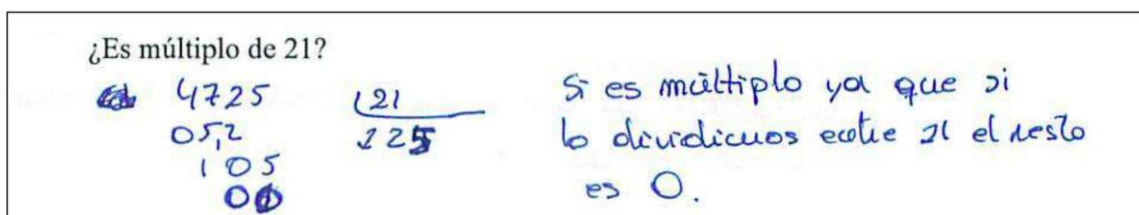 ¿Es múltiplo de 21?
4725 21
05,2 225
105
00
Si es múltiplo ya que si
lo dividimos entre 21 el resto
es 0.